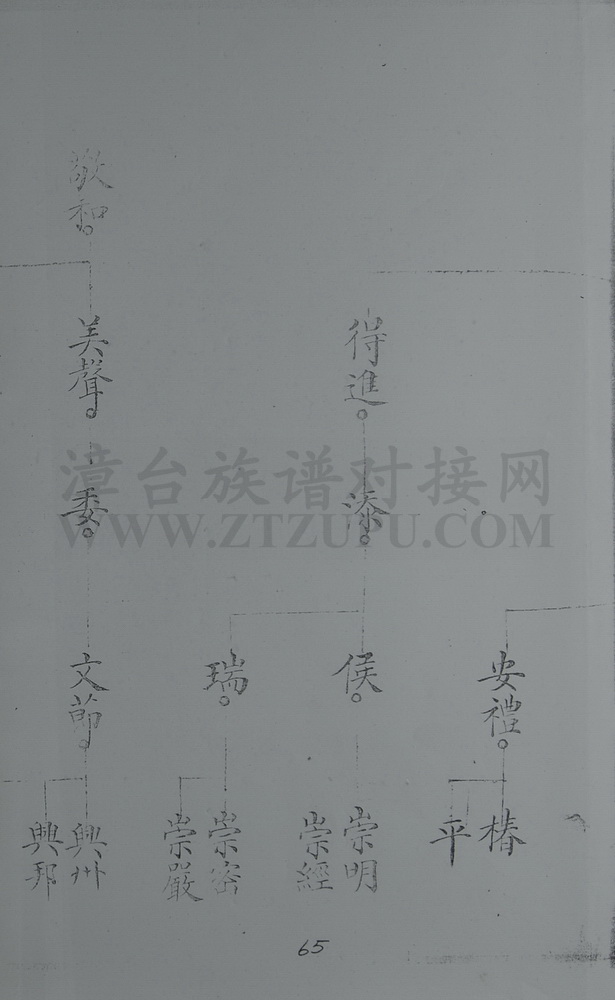 安禮
椿
平
得進
添
侯
崇明
崇經
瑞
崇密
崇嚴
敬和
美聲
委
文節
興州
興邦
漳台族谱对接网
WWW.ZTZUPU.COM
65